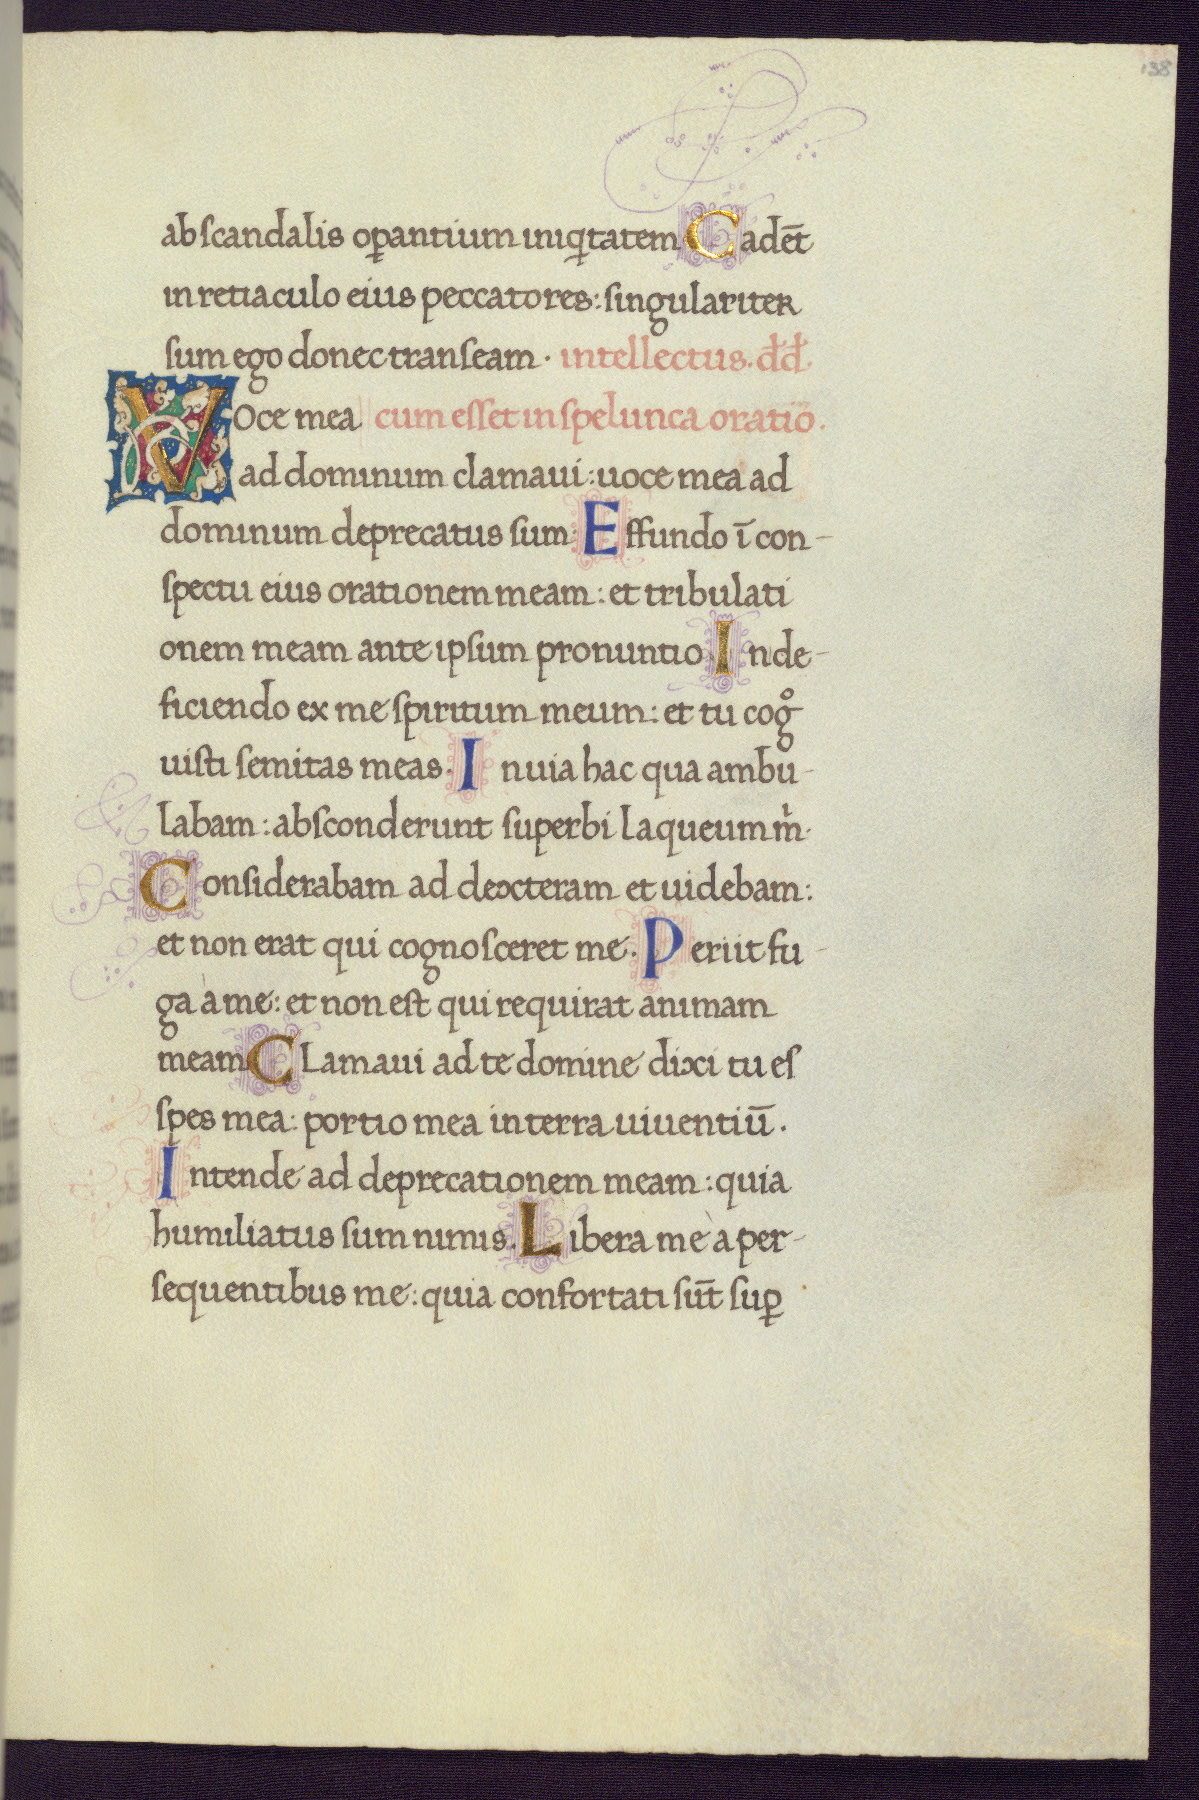 138
ab ſcandalis oꝑantium iniq̇tatem Cadēt
in retiaculo eius peccatores: ſingulariter
ſum ego donec tranſeam · intellectus. dđ
VOce mea cum eſſet in ſpelunca oratio.
ad dominum clamaui: uoce mea ad
dominum deprecatus ſum: Effundo ī con-
ſpectu eius orationem meam: et tribulati
onem meam ante ipſum pronuntio In de-
ficiendo ex me ſpiritum meum: et tu cogͦ
uiſti ſemitas meas. In uia hac qua ambu-
labam: abſconderunt ſuperbi laqueum m̓.
Conſiderabam ad dexteram et uidebam:
et non erat qui cognoſceret me. Periit fu-
ga a me: et non eſt qui requirat animam
meam CLamaui ad te domine dixi tu eſ
ſpes mea: portio mea in terra uiuentiū.
Intende ad deprecationem meam: quia
humiliatus ſum nimis. Libera me a per-
ſequentibus me: quia confortati ſūt ſuꝑ